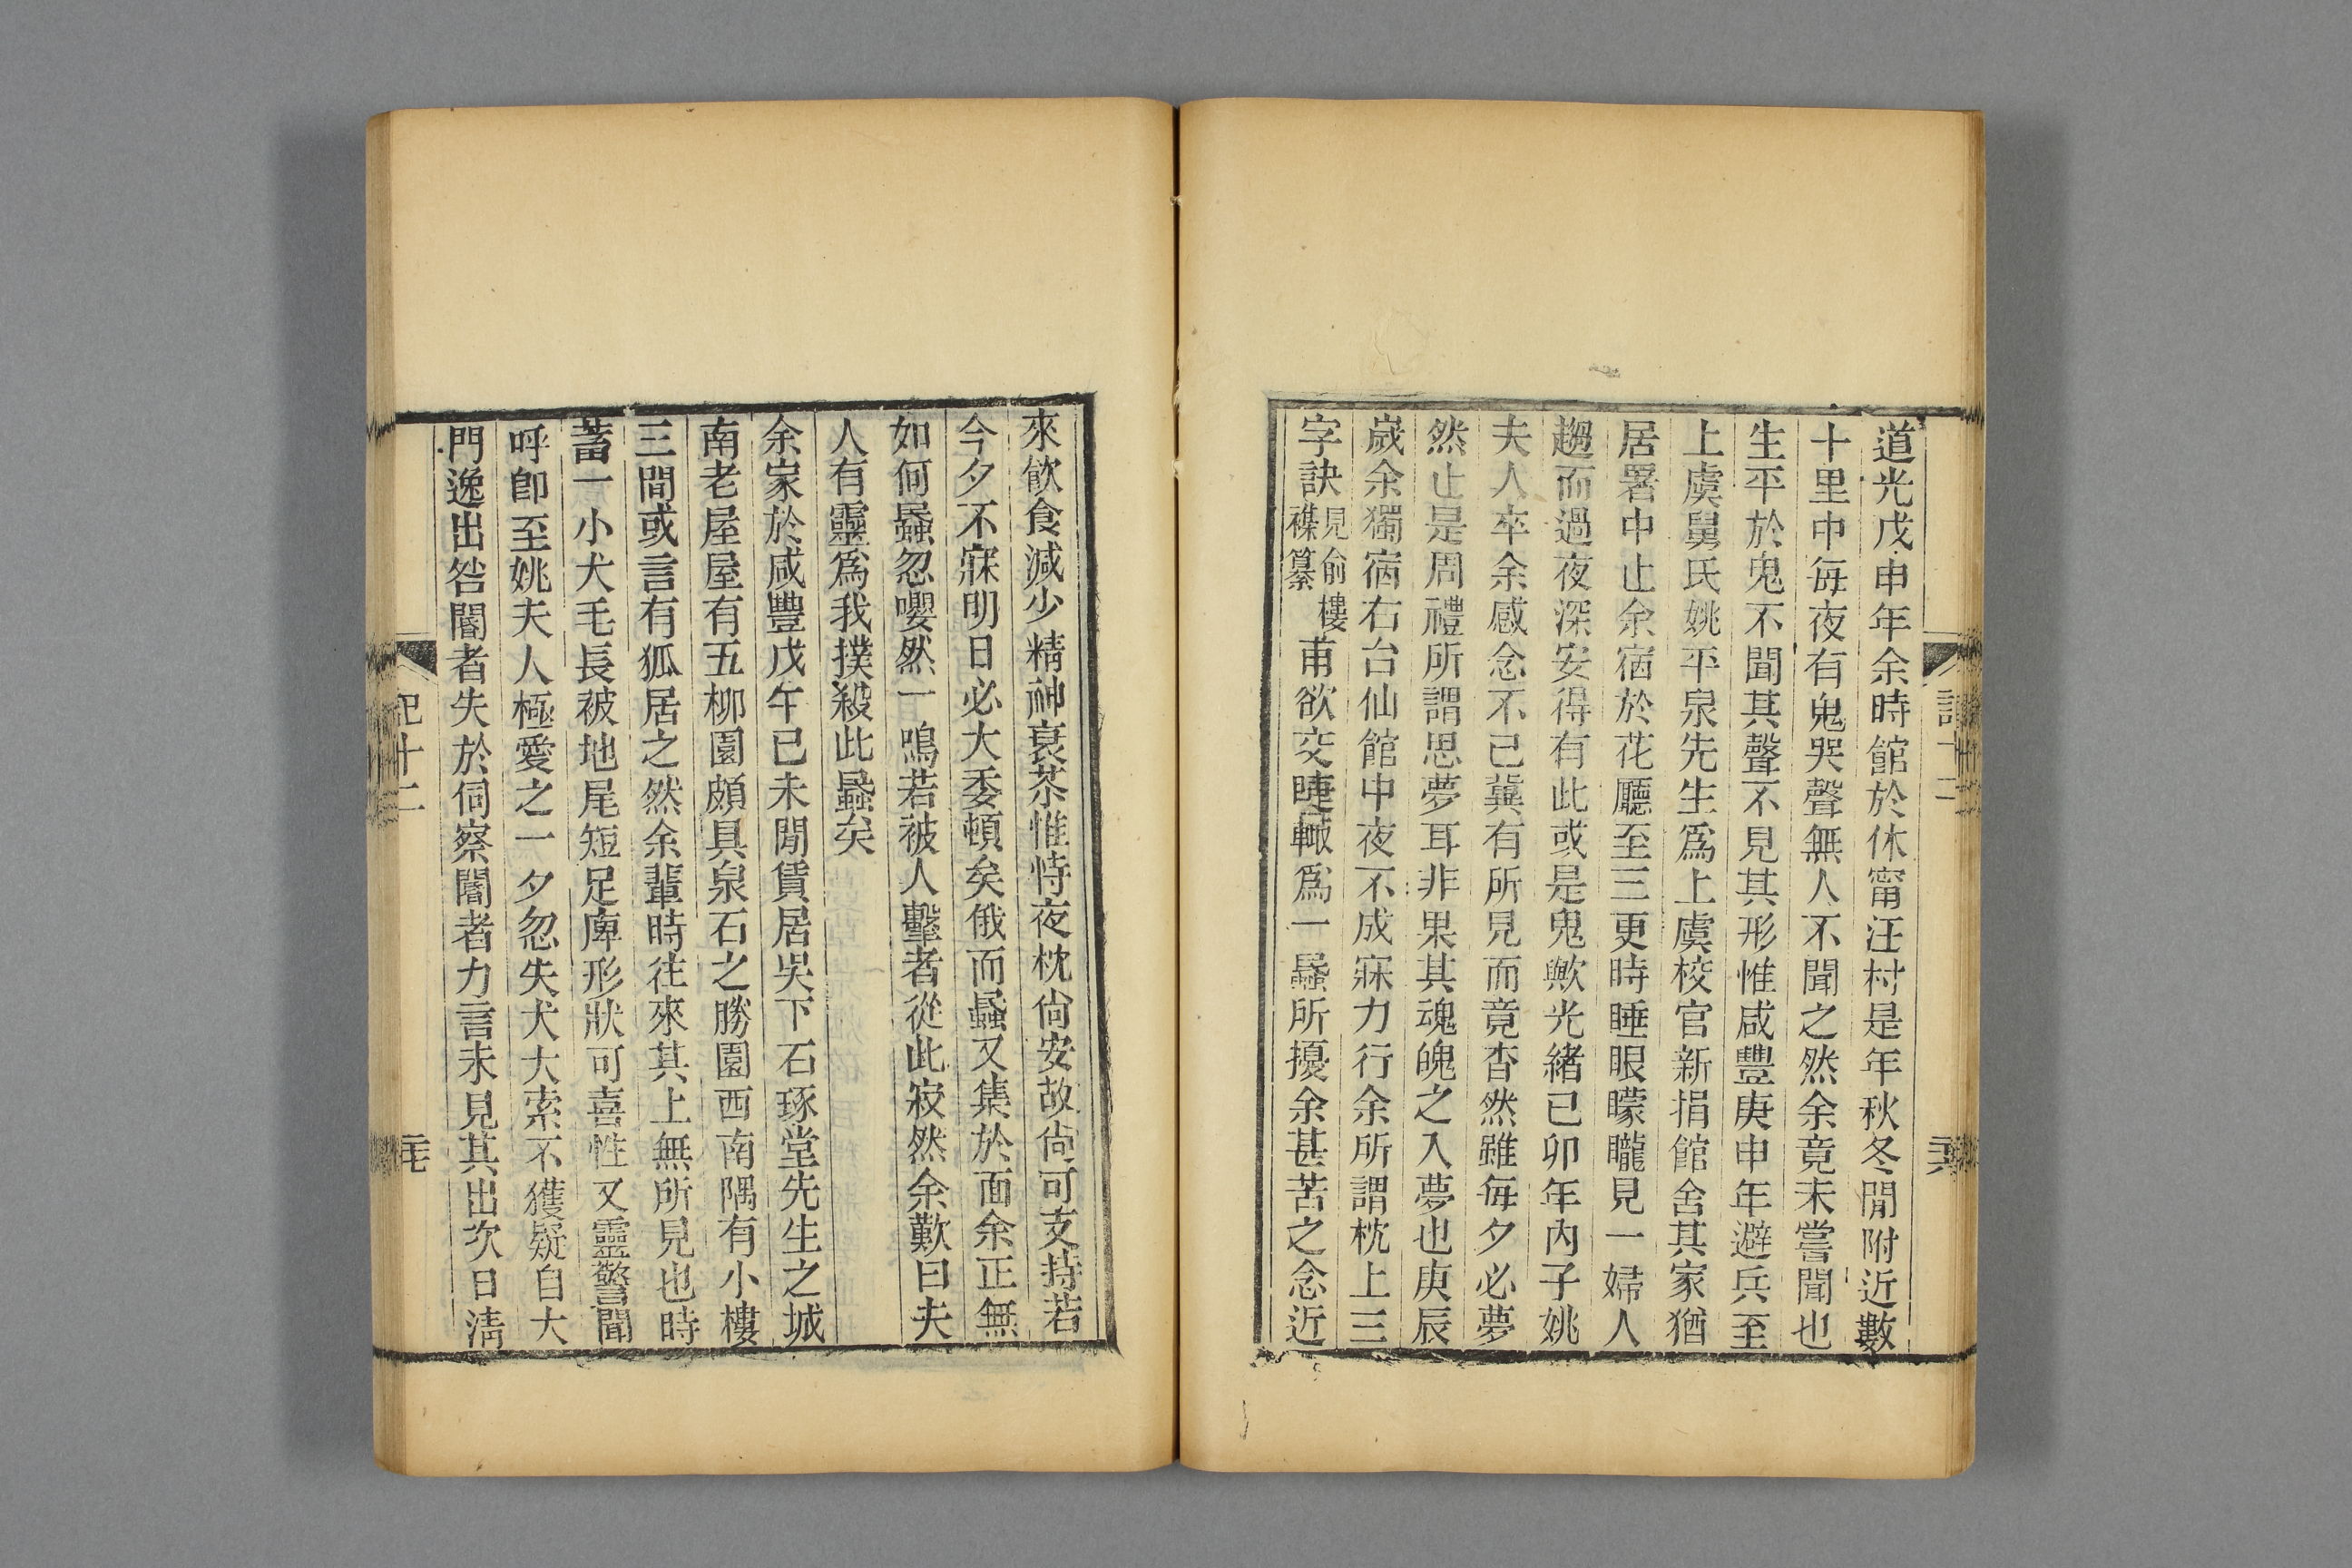 道光戊申年余時館於休甯汪村是年秋冬閒附近數
十里中每夜有鬼哭聲無人不聞之然余竟未嘗聞也
生平於鬼不聞其聲不見其形惟咸豐庚申年避兵至
上虞舅氏姚平泉先生爲上虞校官新捐館舍其家猶
居署中止余宿於花廳至三更時睡眼矇矓見一婦人
趨而過夜深安得有此或是鬼歟光緒己卯年內子姚
夫人卒余感念不已冀有所見而竟杳然雖每夕必夢
然止是周禮所謂思夢耳非果其魂魄之入夢也庚辰
歲余獨宿右台仙館中夜不成寐力行余所謂枕上三
字訣見俞樓襍纂甫欲交睫輒爲一蟁所擾余甚苦之念近
來飲食減少精神衰茶惟恃夜枕尙安故尙可支持若
今夕不寐明日必大委頓矣俄而蟁又集於面余正無
如何蟁忽嚶然一鳴若被人擊者從此寂然余歎曰夫
人有靈爲我撲殺此蟁矣
余家於咸豐戊午己未閒賃居吳下石琢堂先生之城
南老屋屋有五柳園頗具泉石之勝園西南隅有小樓
三間或言有狐居之然余輩時往來其上無所見也時
蓄一小犬毛長被地尾短足庳形狀可喜性又靈警聞
呼卽至姚夫人極愛之一夕忽失犬大索不獲疑自大
門逸出咎閽者失於伺察閽者力言未見其出次日淸
記十二